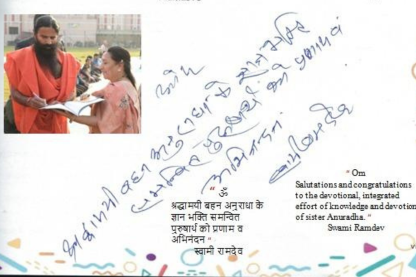 ओम्
श्रद्धामयी बहन अनुराधा के ज्ञान भक्ति
समन्वित पुरुषार्थ को प्रणाम व
अभिनंदन
स्वामी रामदेव
" ॐ
श्रद्धामयी बहन अनुराधा के
ज्ञान भक्ति समन्वित
पुरुषार्थ को प्रणाम व
अभिनंदन "
स्वामी रामदेव
" Om
Salutations and congratulations
to the devotional, integrated
effort of knowledge and devotion
of sister Anuradha. "
Swami Ramdev